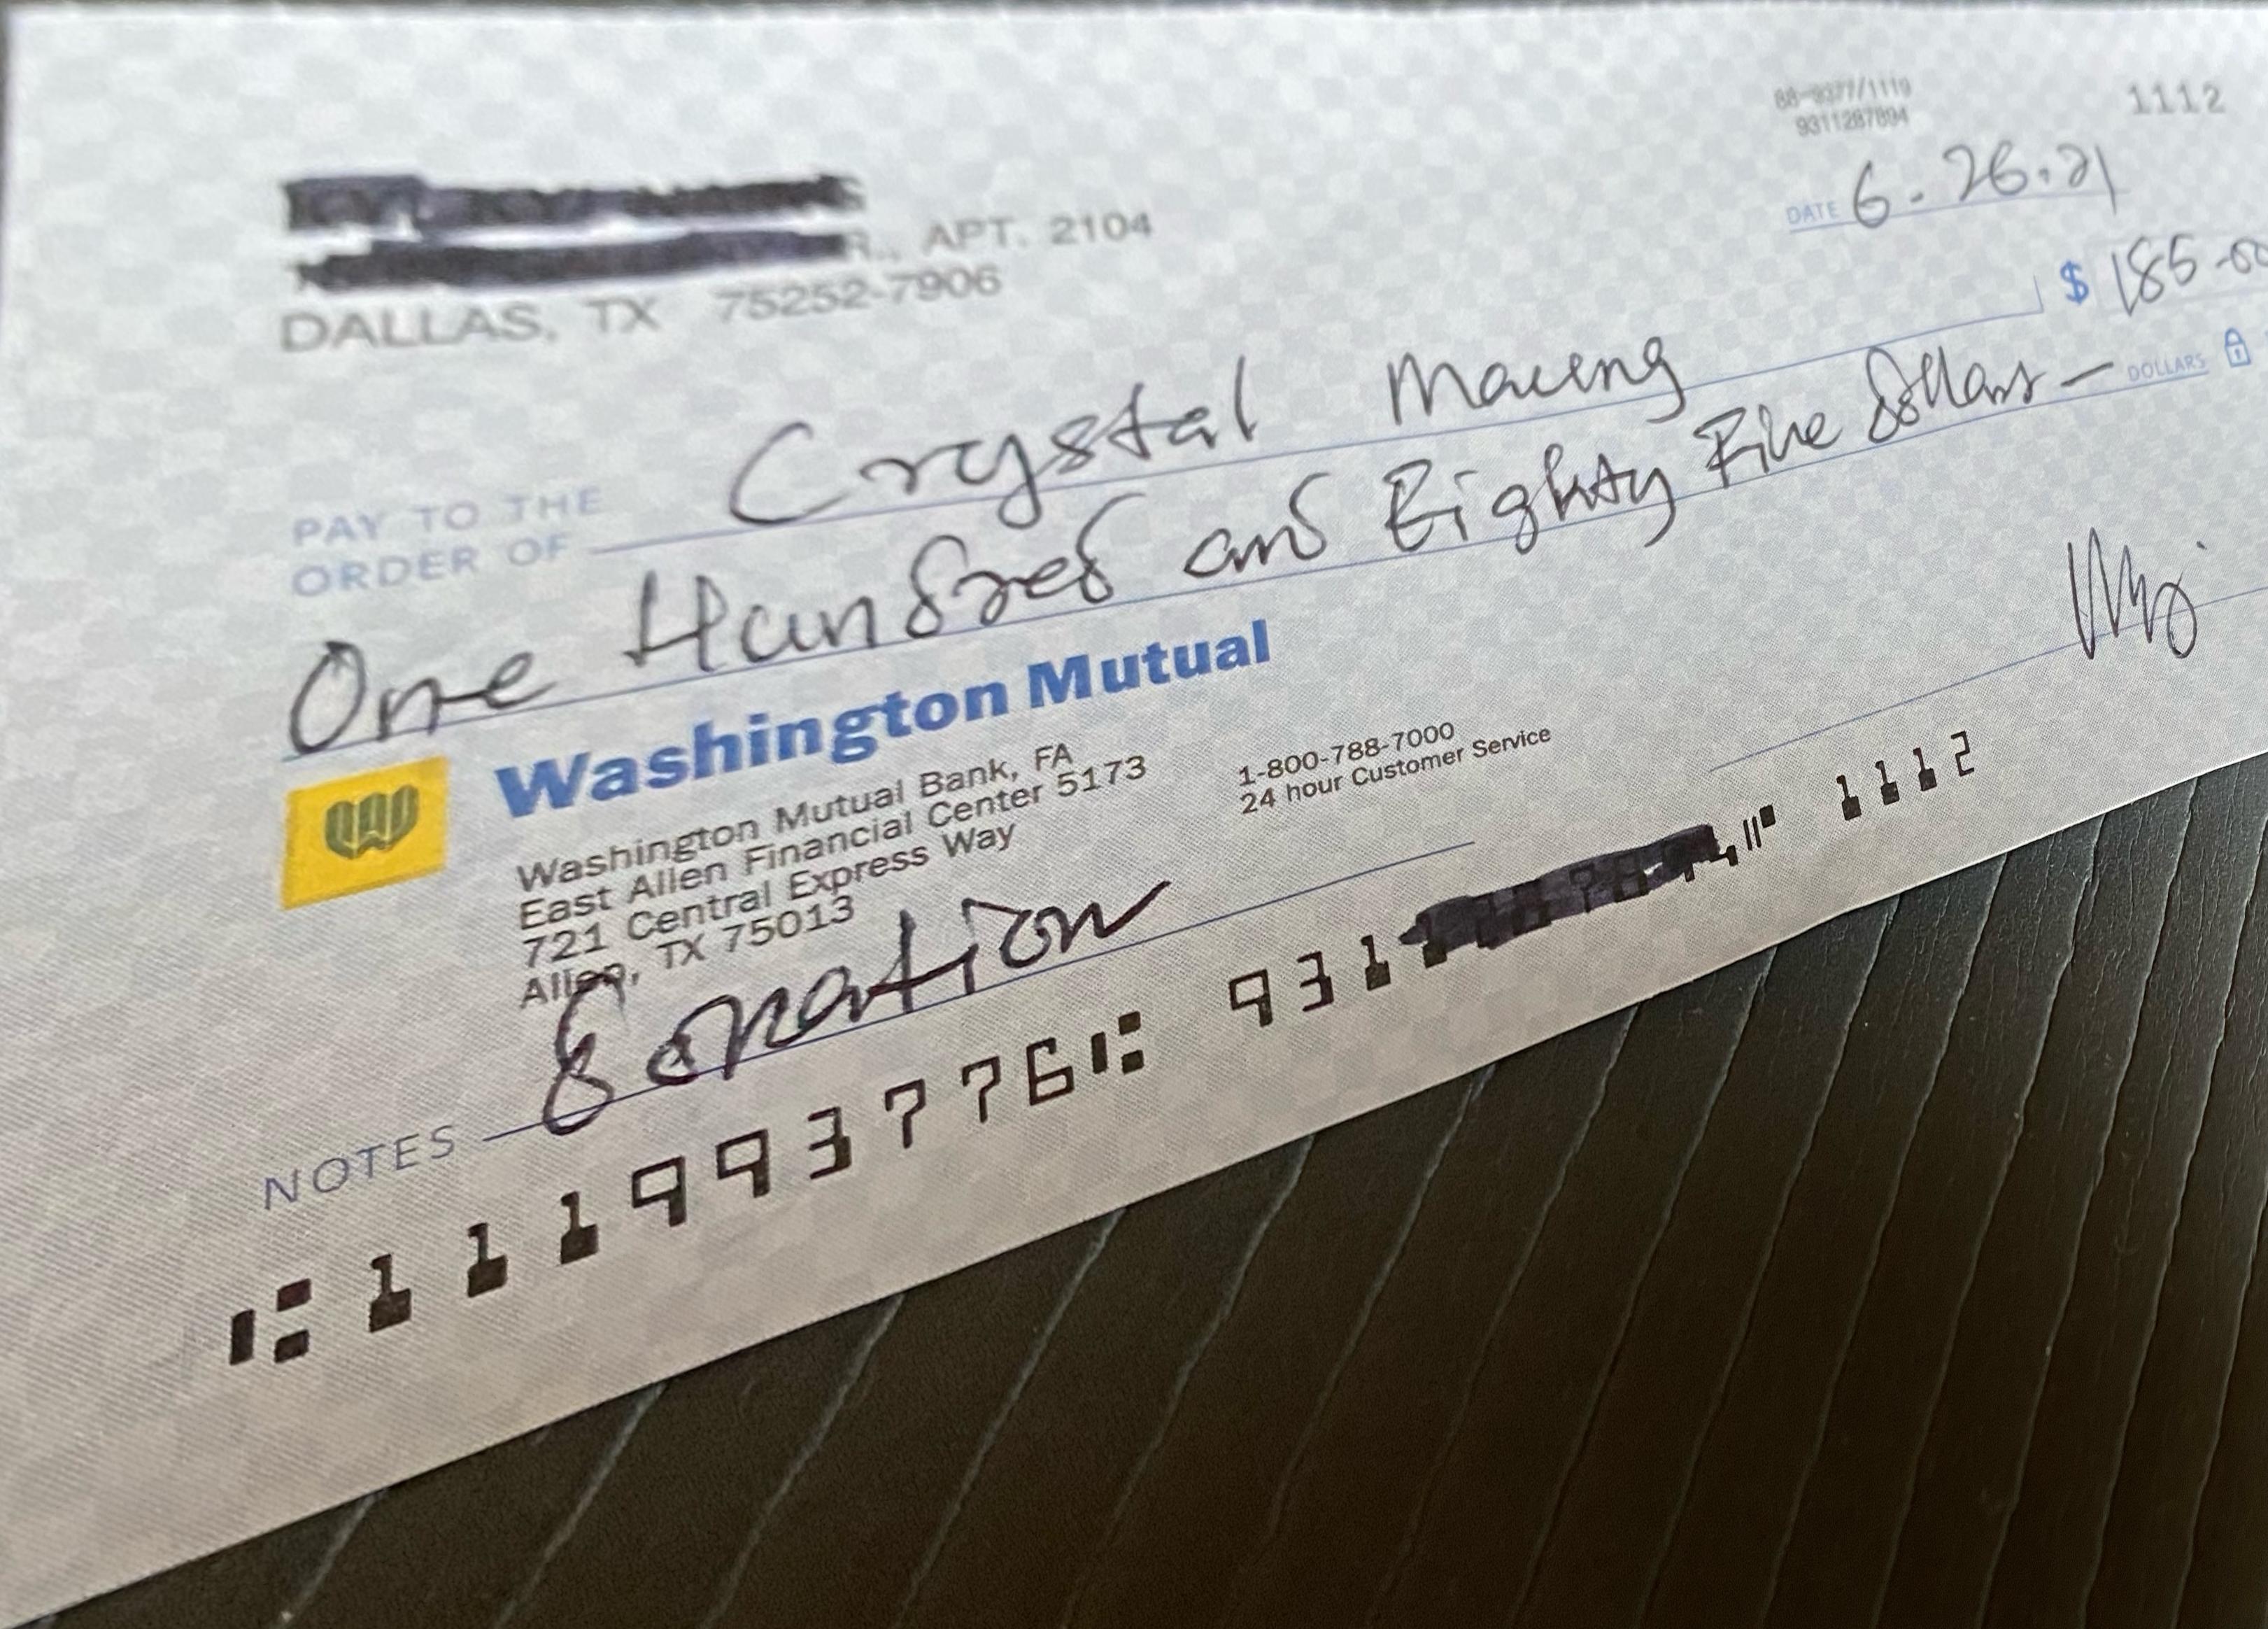 88-9377/1119
1112
R., APT. 2104
DALLAS, TX 75252-7906
DATE 6.26.21
PAY TO THE
ORDER OF Crystal
$ 185.00
One Hundred and Eighty Five dollars — DOLLARS
Washington Mutual
Washington Mutual Bank, FA
East Allen Financial Center 5173
721 Central Express Way
Allen, TX 75013
1-800-788-7000
24 hour Customer Service
NOTES donation
⑆111993776⑆ 931 ⑈ 1112